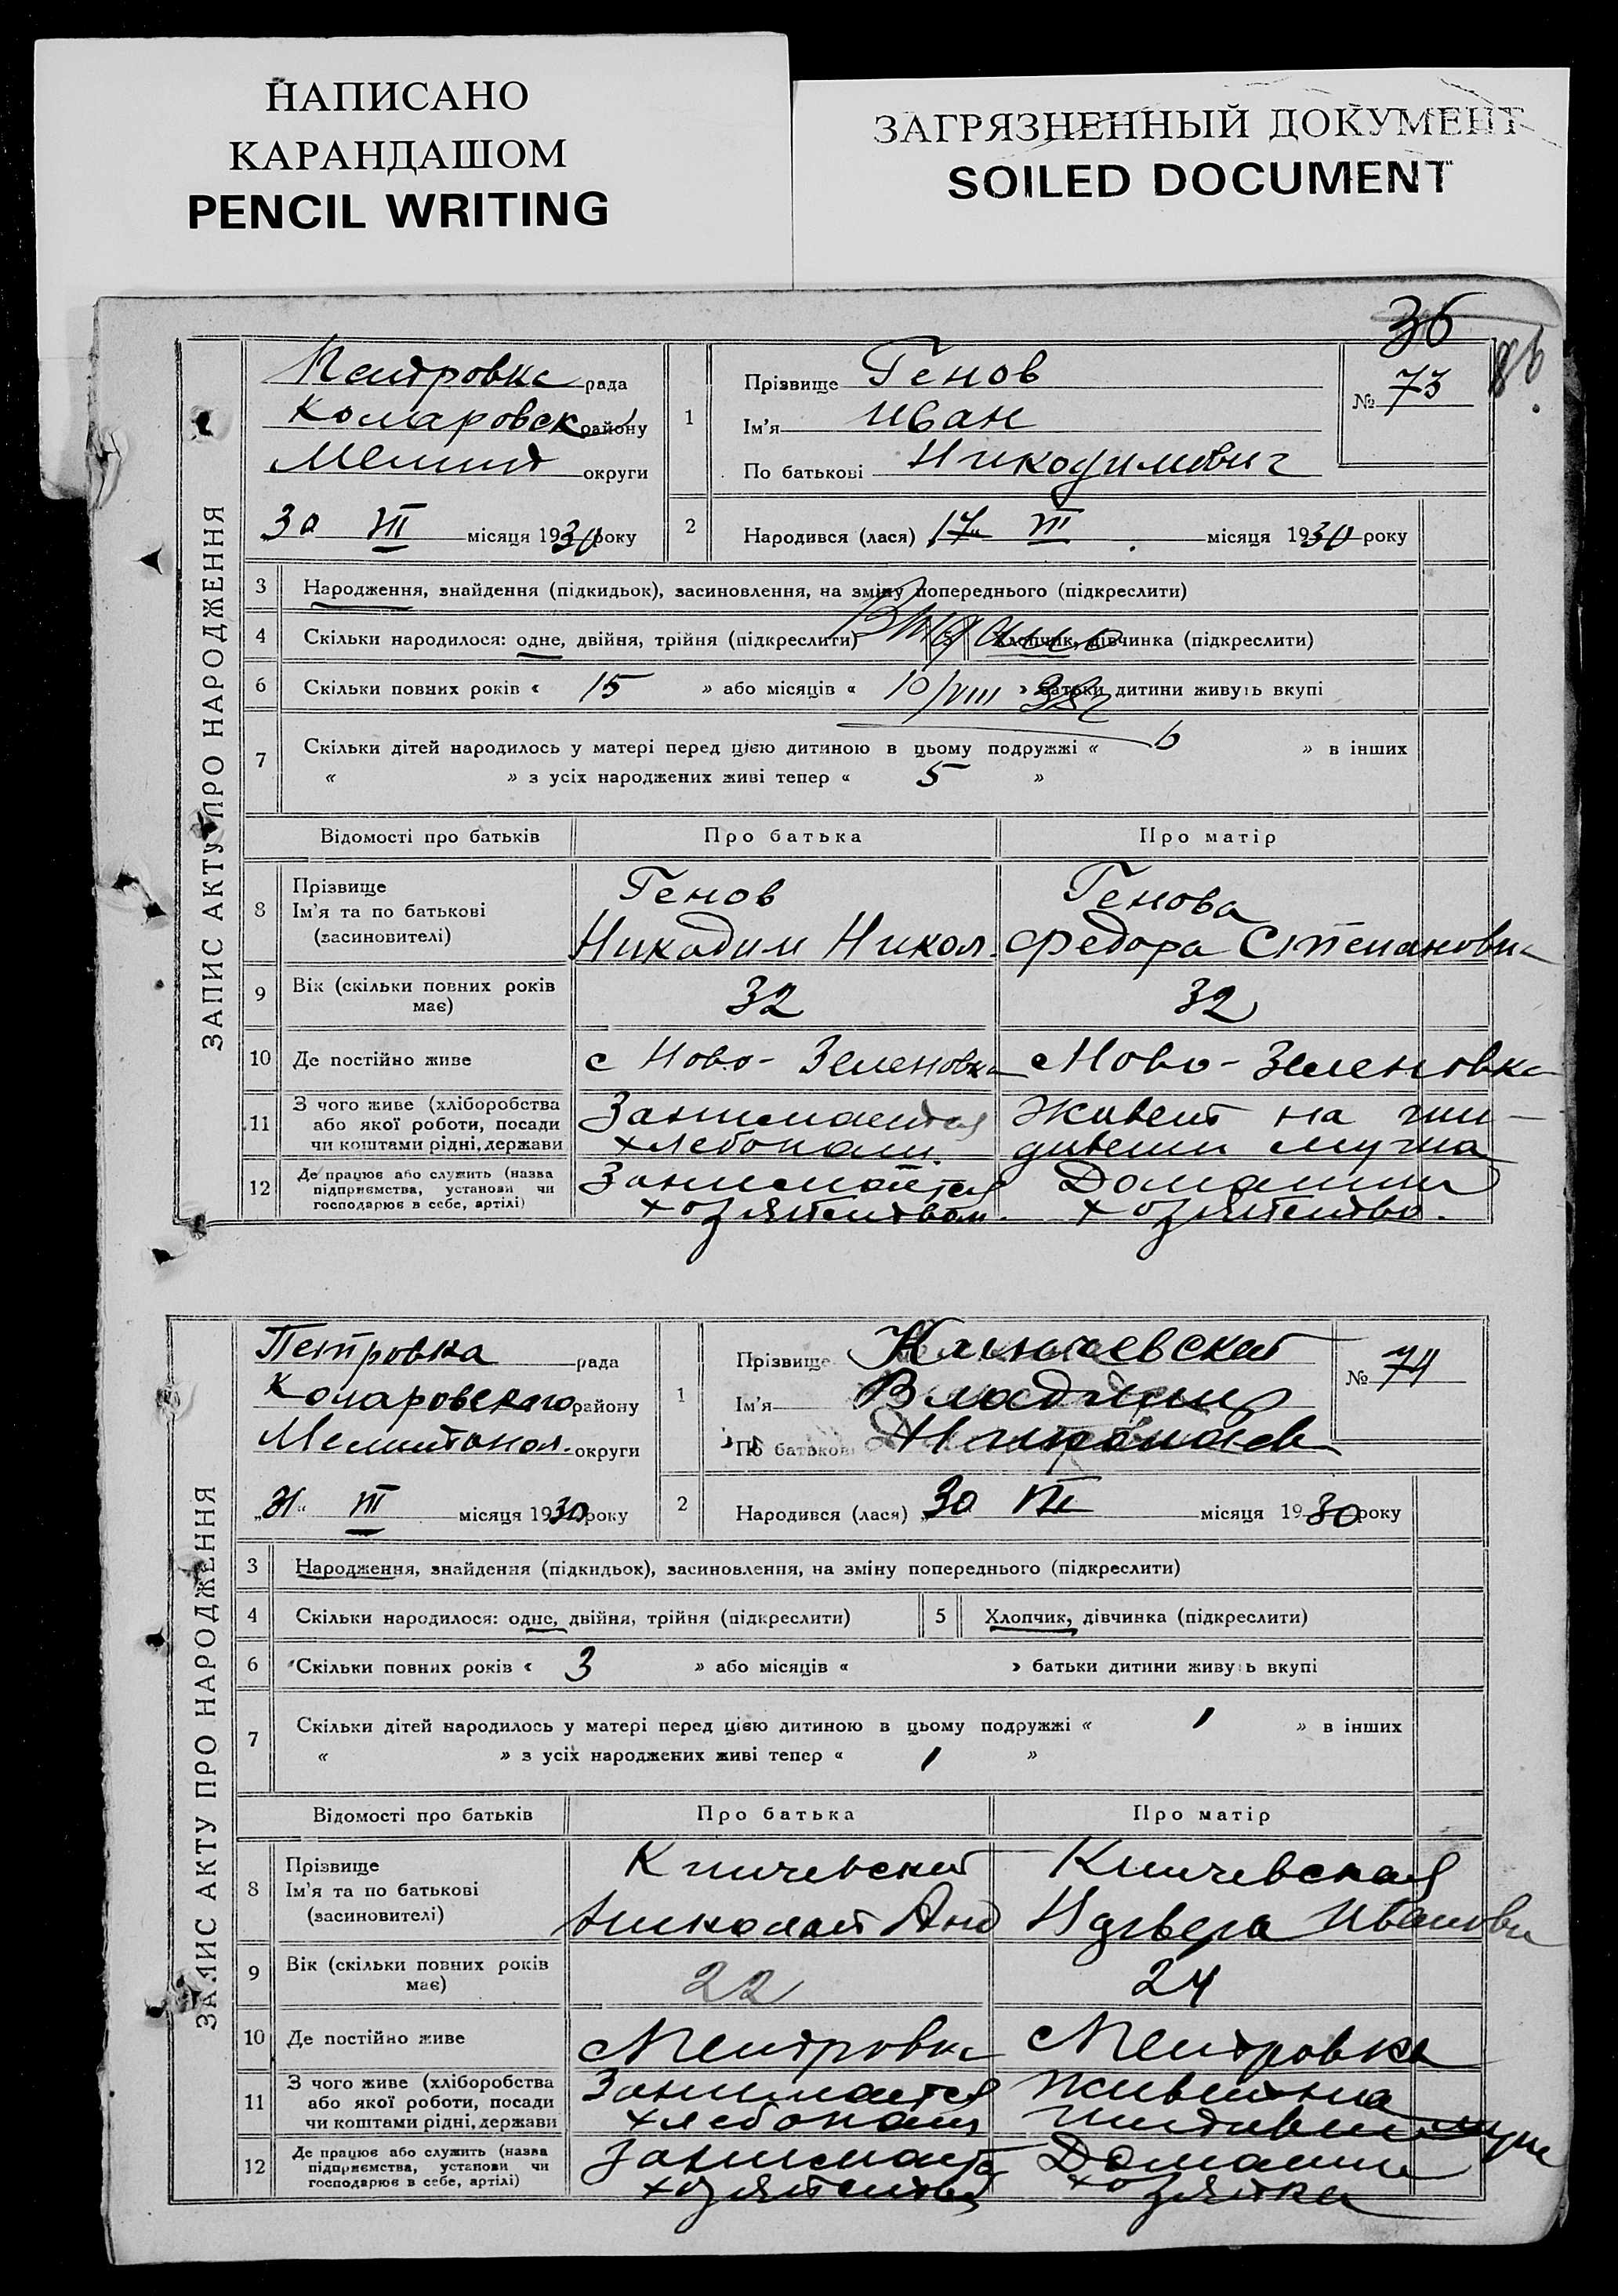 НАПИСАНО
КАРАНДАШОМ
PENCIL WRITING
ЗАГРЯЗНЕННЫЙ ДОКУМЕНТ
SOILED DOCUMENT
36
86
ЗАПИС АКТУ ПРО НАРОДЖЕННЯ
Петровка рада
Комаровск району
Мелит округи
30 III місяця 1930 року
1 Прізвище Генов
Ім'я Иван
По батькові Никодимович
№ 73
2 Народився (лася) „17“ III місяця 1930 року
3 Народження, знайдення (підкидьок), засиновлення, на зміну попереднього (підкреслити)
4 Скільки народилося: одне, двійня, трійня (підкреслити) 5 Хлопчик, дівчинка (підкреслити)
6 Скільки повних років « 15 » або місяців « » батьки дитини живуть вкупі
10/VIII 38 г
7 Скільки дітей народилось у матері перед цією дитиною в цьому подружжі « 6 » в інших
« » з усіх народжених живі тепер « 5 »
Відомості про батьків Про батька Про матір
8 Прізвище Ім'я та по батькові (засиновителі)
Генов Генова
Никодим Никол. Федора Степановна
9 Вік (скільки повних років має) 32 32
10 Де постійно живе с Ново-Зеленовка с Ново-Зеленовка
11 З чого живе (хліборобства або якої роботи, посади чи коштами рідні, держави
Занимается Живет на иж-
хлебопаш. дивении мужа
12 Де працює або служить (назва підприємства, установи чи господарює в себе, артілі)
Занимается Домашн
хозяйством. хозяйство.
ЗАПИС АКТУ ПРО НАРОДЖЕННЯ
Петровка рада
Комаровского району
Мелитопол. округи
„31“ III місяця 1930 року
1 Прізвище
Ім'я Владимир
По батькові
№ 74
2 Народився (лася) „30 III місяця 1930 року
3 Народження, знайдення (підкидьок), засиновлення, на зміну попереднього (підкреслити)
4 Скільки народилося: одне, двійня, трійня (підкреслити) 5 Хлопчик, дівчинка (підкреслити)
6 Скільки повних років « 3 » або місяців « » батьки дитини живуть вкупі
7 Скільки дітей народилось у матері перед цією дитиною в цьому подружжі « 1 » в інших
« » з усіх народжених живі тепер « 1 »
Відомості про батьків Про батька Про матір
8 Прізвище Ім'я та по батькові (засиновителі)
Николай Анд Ивановн
9 Вік (скільки повних років має) 22 24
10 Де постійно живе с Петровка с Петровка
11 З чого живе (хліборобства або якої роботи, посади чи коштами рідні, держави
Занимается Живет на
хлебопаш муж
12 Де працює або служить (назва підприємства, установи чи господарює в себе, артілі)
Занимает Домашн
хозяйство хозяйка